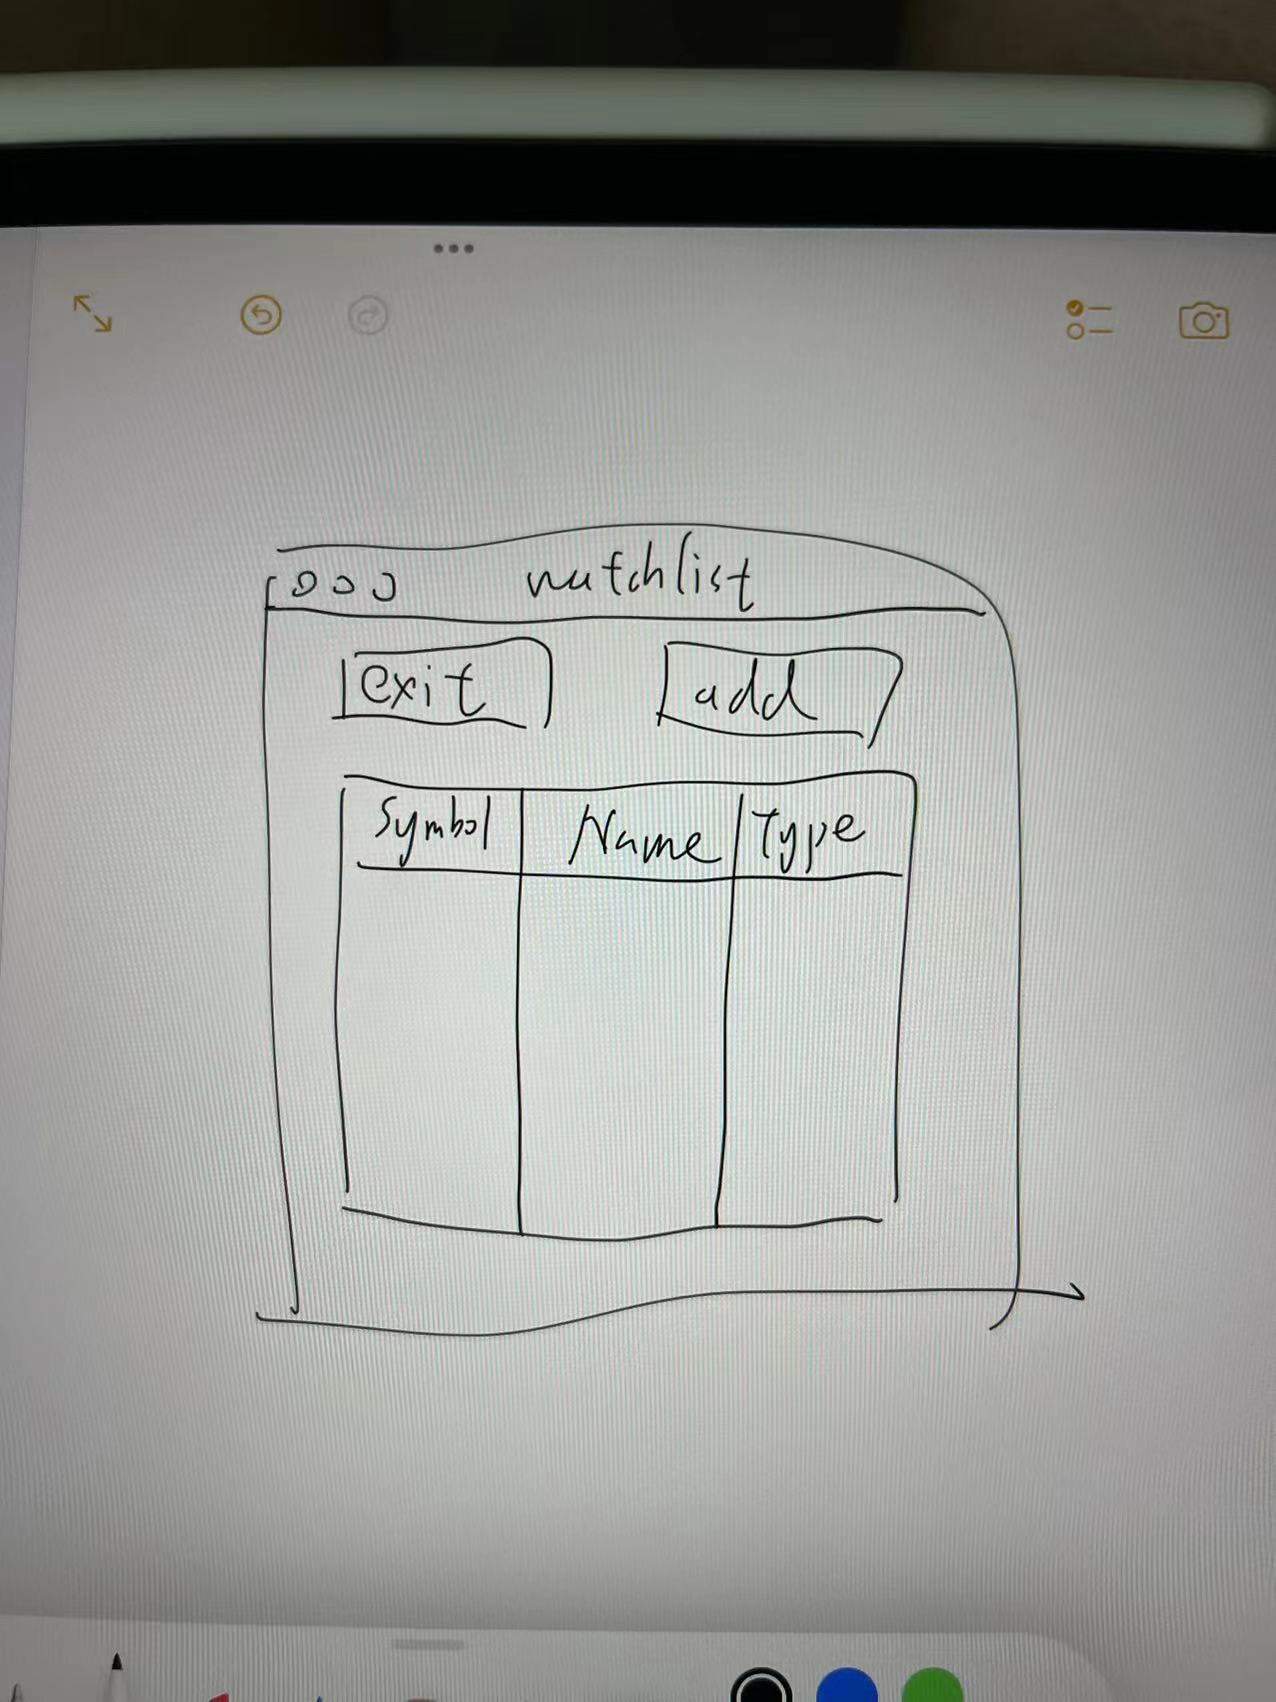 watchlist
exit add
Symbol Name Type